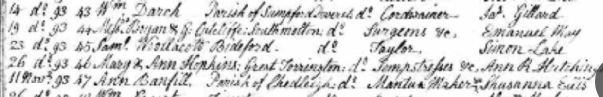 14 dº 93 43 Wm Darch Parish of Sampford Peverel dº Cordwainer Jas. Gillard
19 dº 93 44 Messrs Bryan & G. Cutcliffe Southmolton dº Surgeons &c, Emanuel May
23 dº 93 45 Saml Woollacott Bideford dº Taylor Simon Lake
26 dº 93 46 Mary & Ann Hopkins; Great Torrington dº Sempstresses &c, Ann R. Hitchins
11 Novr 93 47 Ann Banfill, Parish of Chedleigh dº Mantua Maker Shusanna Ellis